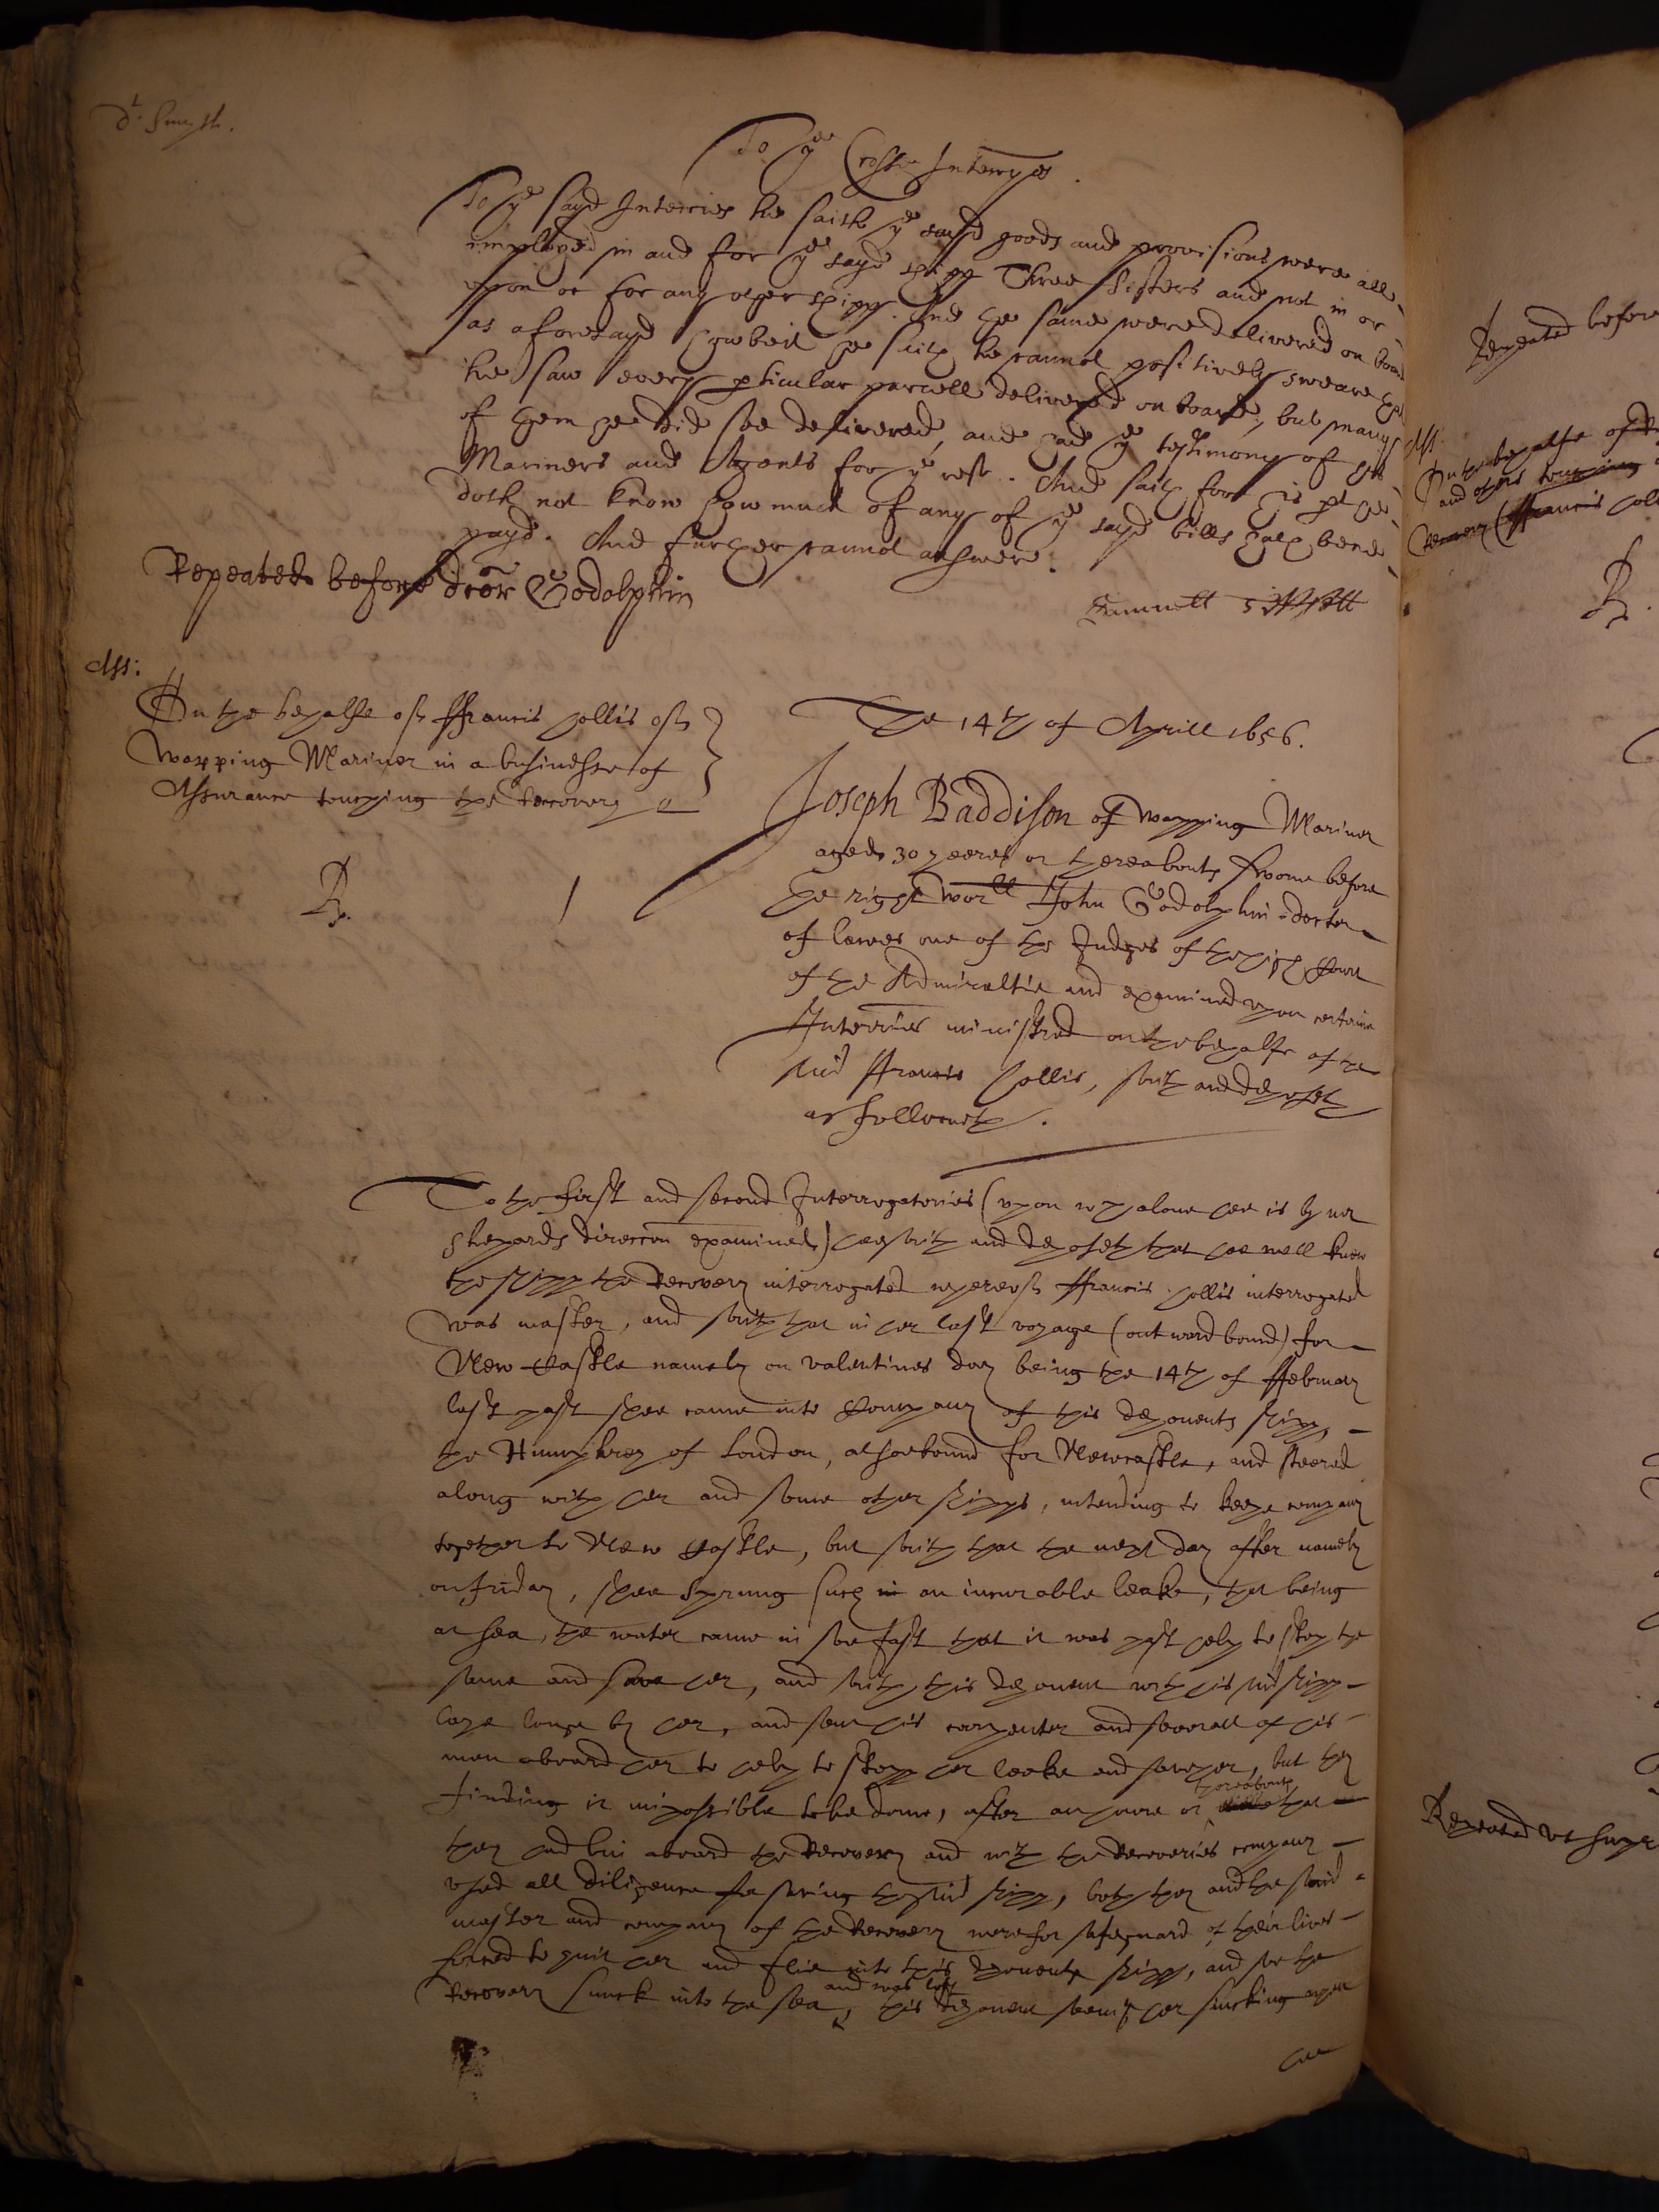 dr. Smyth.
To ye Crosse Interryes.
To ye sayd Interries he saith ye sayd goods and provisions were all
imployed in and for ye sayd shipp Three Sisters and not in or
upon or for any other shipp. And the same were delivered on board
as aforesayd howbeit he saith he cannot positively sweare that
he saw every pticular parcell delivered on board, but many
of them hee did see delivered, and had ye testimony of his
Mariners and Agents for ye rest. And saith for his pt hee
doth not know how much of any of ye sayd bills hath bene
payd. And further cannot answere.
Repeated before dcor Godolphin
Ass:
On the behalfe of ffrancis Hollis of
Wapping Mariner in a businesse of
Assurance touching the Recovery
The 14th of Aprill 1656.
Joseph Baddison of Wapping Mariner
aged 30 yeeres or thereabouts sworne before
the right worll John Godolphin doctor
of lawes one of the Judges of the high Court
of the Admiraltie and examined upon certaine
Interries ministred on the behalfe of the
said ffrancis Hollis, saith and deposeth
as followeth.
Rp. 1
To the first and second Interrogatories (upon wch alone hee is by mr
Shepards direccon examined) hee saith and deposeth that hee well knew
the shipp the Recovery interrogated whereof ffrancis Hollis interrogated
was master, and saith that in her last voyage (outward bound) for
New Castle namely on valentines day being the 14th of ffebruary
last past shee came into Company of this deponents shipp,
the Humphrey of London, alsoe bound for Newcastle, and steered
along with her and some other shipps, intending to keepe company
together to New Castle, but saith that the next day after namely
on friday, shee sprung such in an incurable leake, that being
at sea, the water came in soe fast that it was past help to stop the
same and save her, and saith this deponent with his said shipp
laye longe by her, and sent his carpenter and severall of his
men aboard her to help to stopp her leake and save her, but they
finding it impossible to be done, after an houre or thereabouts that
they had bin aboard the Recovery and with the Recoveries company
used all diligence for saving the said shipp, both they and the said
master and company of the Recovery were for safeguard of their lives
forced to quit her and flie into this deponents shipp, and soe the
Recovery sunck into the sea and was lost, this deponent seeing her sincking upon
Repeated before
Ass:
On the behalfe of
and others touching
Recovery (ffrancis Holl
Rp.
Repeated ut supr